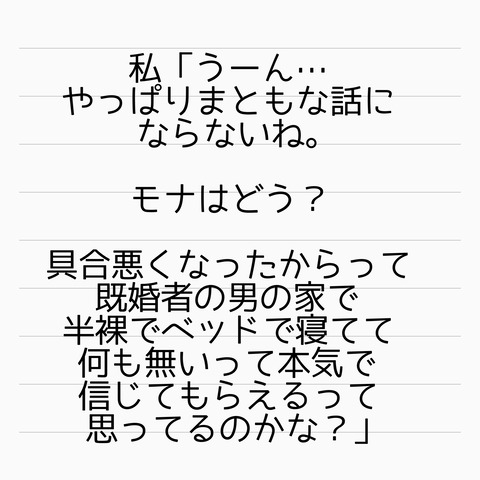 私「うーん…
やっぱりまともな話に
ならないね。
モナはどう？
具合悪くなったからって
既婚者の男の家で
半裸でベッドで寝てて
何も無いって本気で
信じてもらえるって
思ってるのかな？」